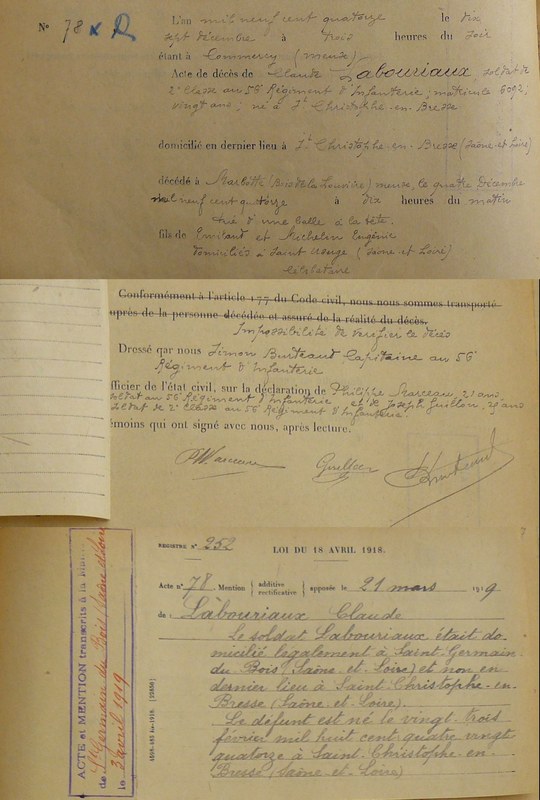 N° 78 x R
L'an mil neuf cent quatorze le dix
sept décembre à trois heures du soir
étant à Commercy (meuse)
Acte de décès de Claude Labouriaux, soldat de
2e Classe au 56e Régiment d'Infanterie; matricule 6092;
vingt ans; né à St Christophe-en-Bresse
domicilié en dernier lieu à St Christophe-en-Bresse (Saône-et-Loire)
décédé à Marbotte (Bois de la Louvière) meuse, le quatre Décembre
mil neuf cent quatorze à dix heures du matin
tué d'une balle à la tête.
fils de Emiland et Michelin Eugénie
domiciliés à Saint Usuge (Saône et Loire)
célibataire
Conformément à l'article 77 du Code civil, nous nous sommes transporté
auprès de la personne décédée et assuré de la réalité du décès.
Impossibilité de vérifier le décès
Dressé par nous Simon Burteaud Capitaine au 56e
Régiment d'Infanterie
officier de l'état civil, sur la déclaration de Philippe Marceau, 21 ans
soldat au 56e Régiment d'Infanterie et de Joseph Guillon, 29 ans
soldat de 2e Classe au 56e Régiment d'Infanterie
témoins qui ont signé avec nous, après lecture.
n° 252
LOI DU 18 AVRIL 1918.
Acte n° 78 Mention additive rectificative apposée le 21 mars 1919
de : Labouriaux Claude
Le soldat Labouriaux était do-
micilié légalement à Saint-Germain-
du-Bois (Saône-et-Loire) et non en
dernier lieu à Saint-Christophe-en-
Bresse (Saône-et-Loire).
Le défunt est né le vingt-trois
février mil huit cent quatre vingt
quatorze à Saint-Christophe-en-
Bresse (Saône-et-Loire)
ACTE et MENTION transcrits à la
de St Germain du Bois Saône et Loire
le 3 avril 1919